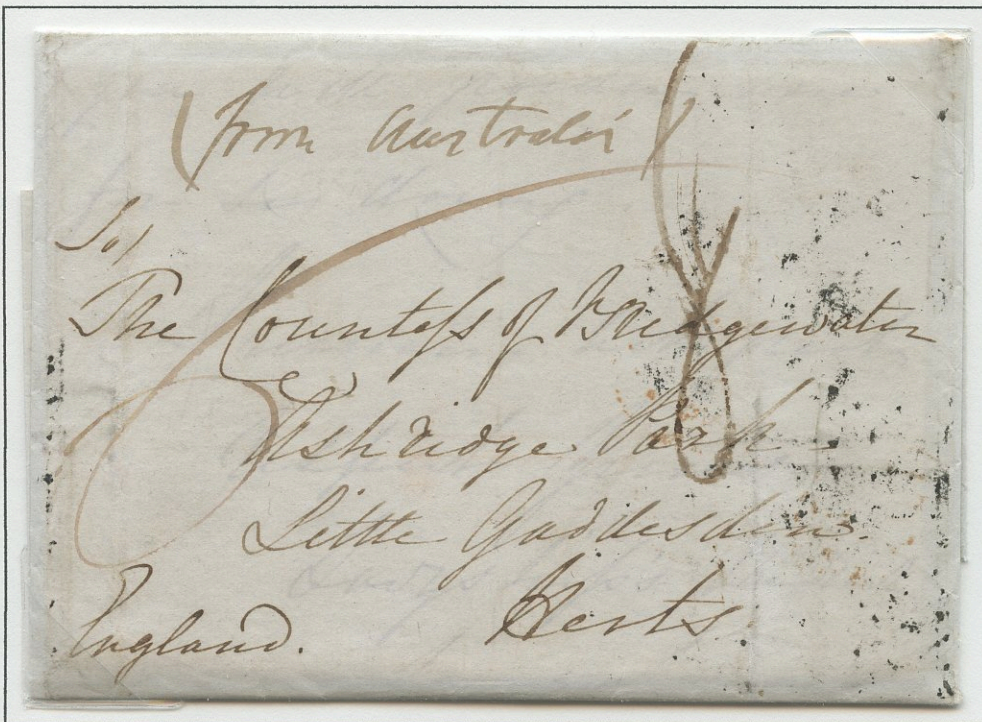 (from Australia)
To/
The Countess of Bridgewater
Ashridge Park
Little Gaddesden
Herts
England.
8